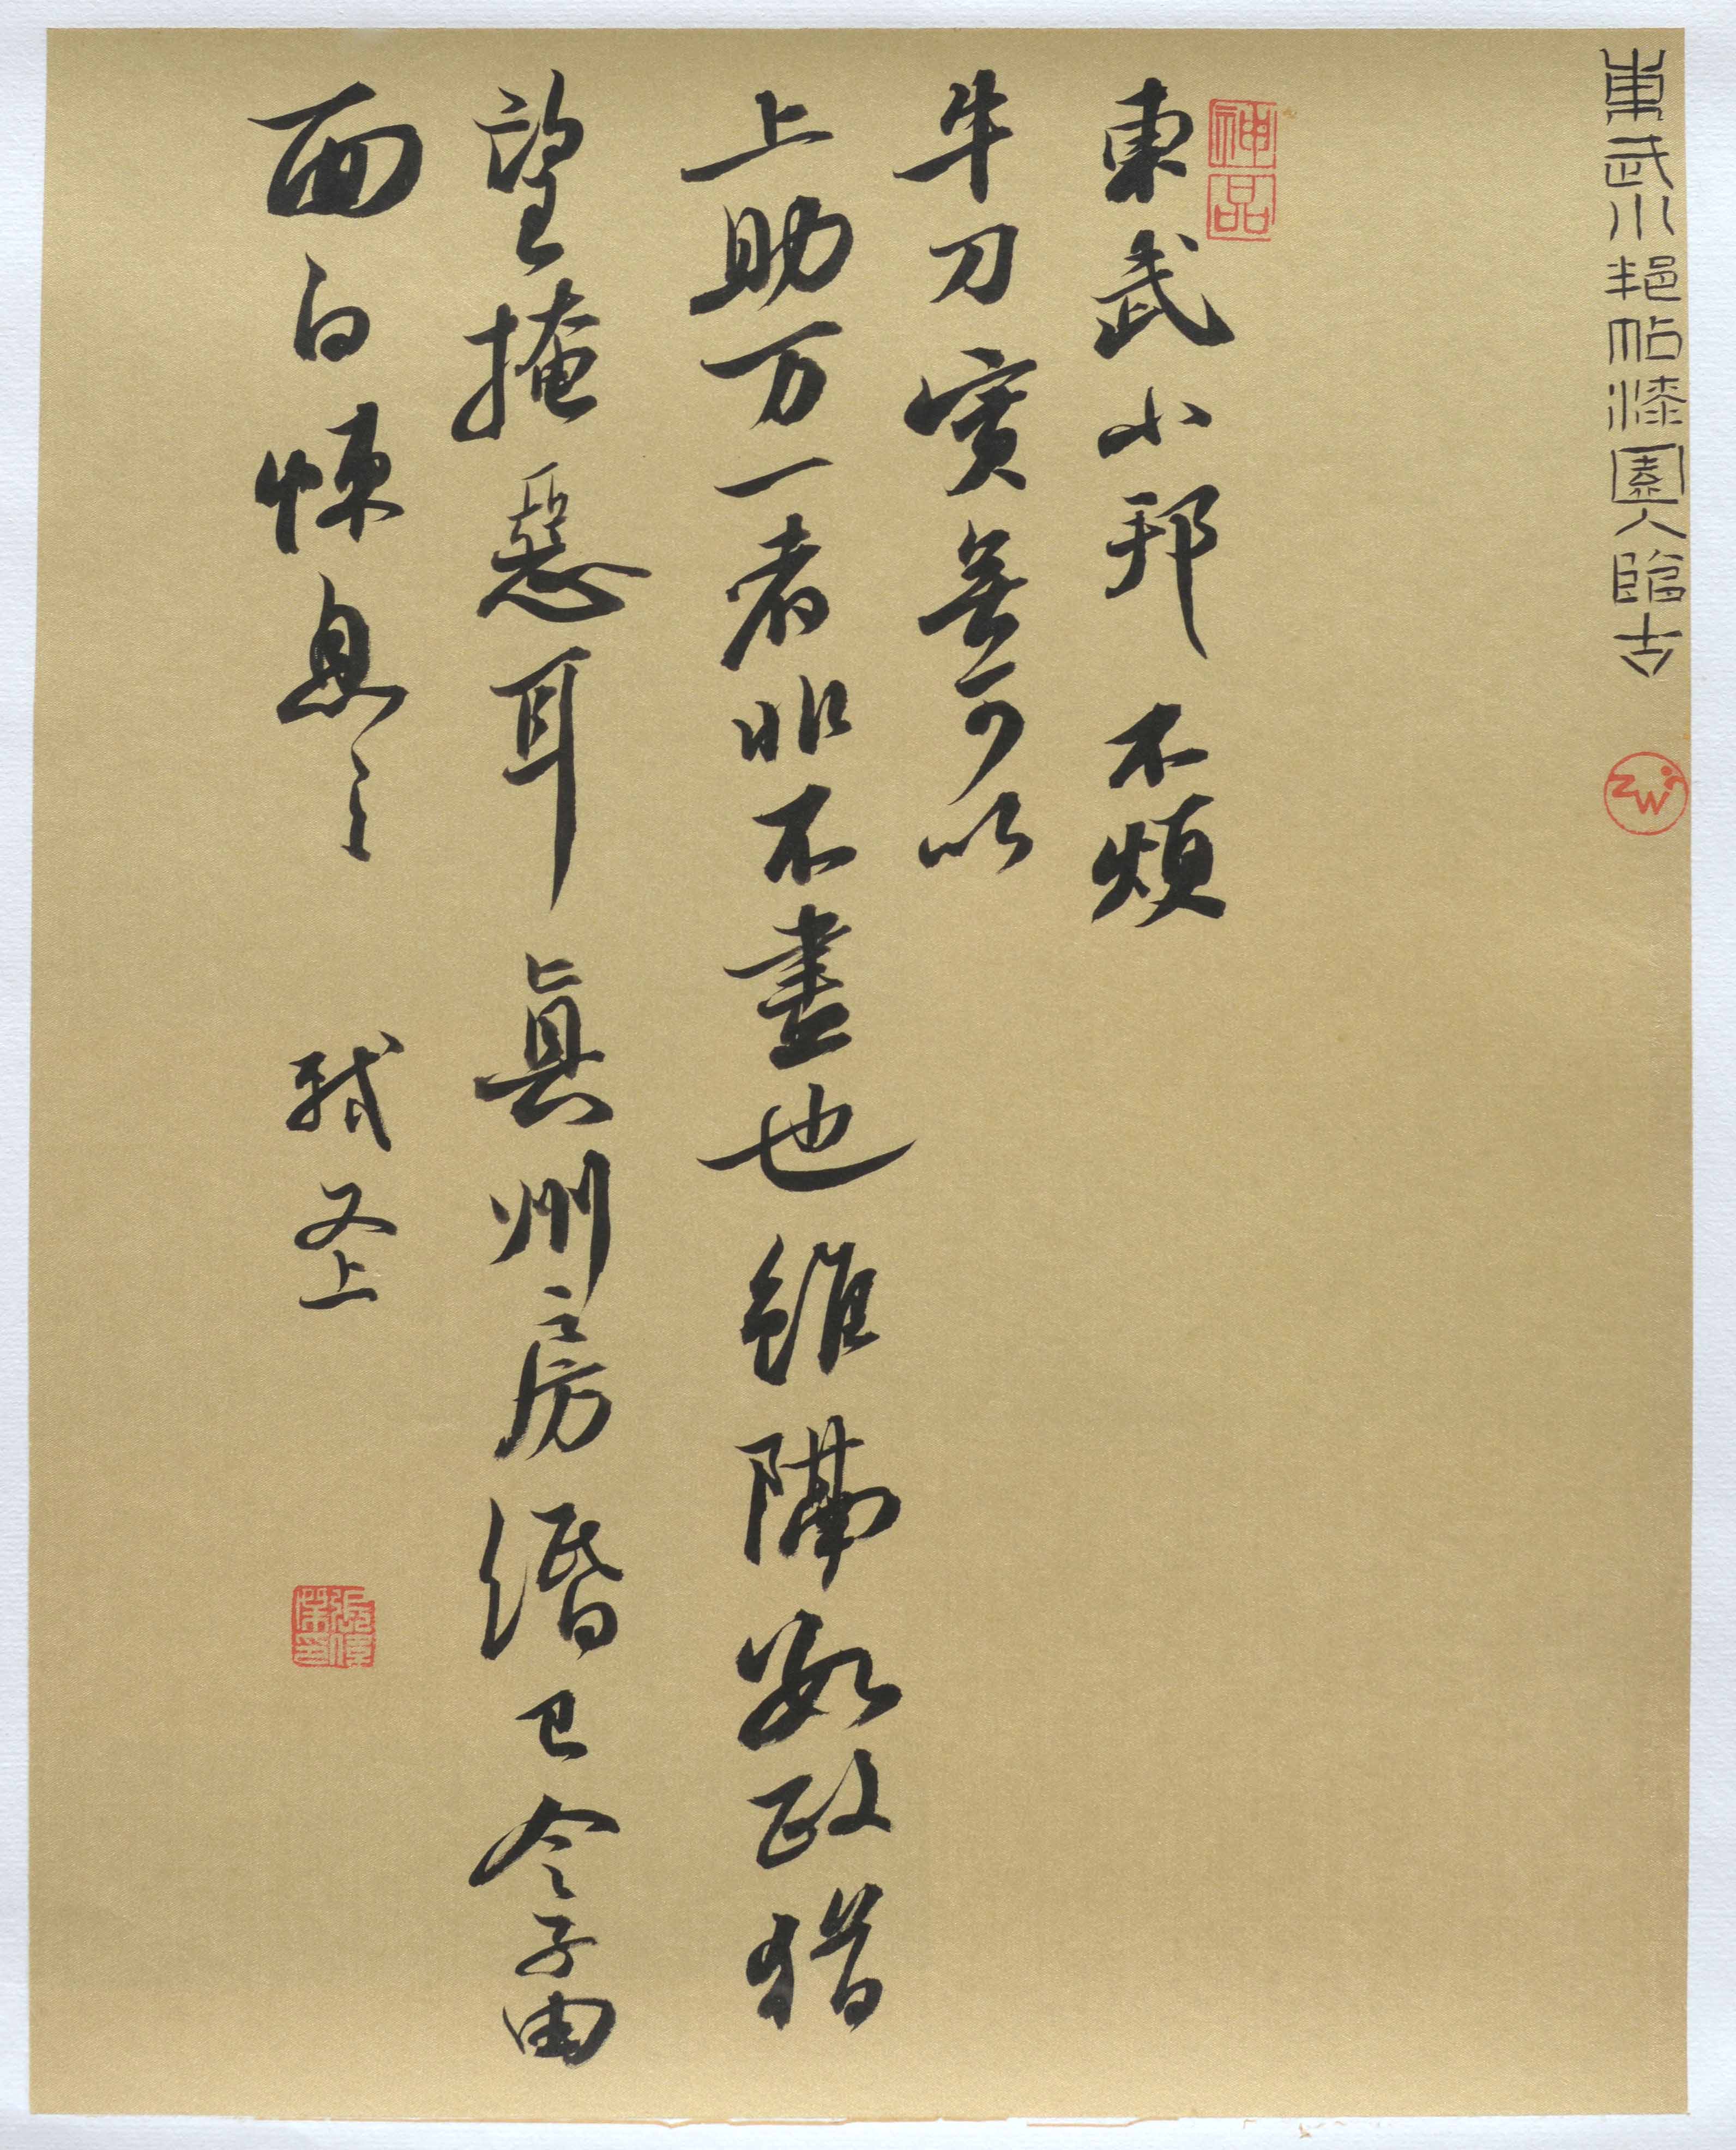 東武小邦帖漆園人臨古
神品
東武小邦不煩
牛刀實無可以
上助万一者非不盡也雖隔數政猶
望掩惡耳真州房緡已令子由
面白悚息之
軾又上
ZW